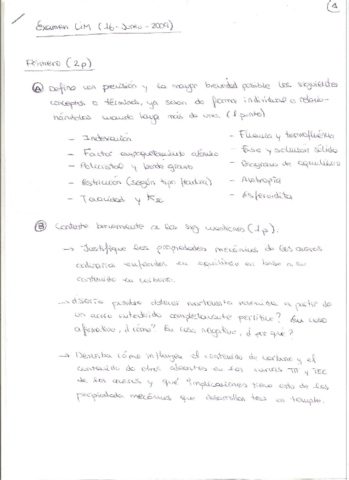 1
Examen CiM (16-Junio-2009)
Primero (2p)
A) Defina con precisión y la mayor brevedad posible los siguientes
conceptos o términos, ya sean de forma individual o relacio-
nándolos cuando haya más de uno. (1 punto)
- Indexación
- Factor empaquetamiento atómico
- Policristal y borde grano
- Restricción (según tipo
- Tenacidad y KIC
- Fluencia y termofluencia
- Fase y solución sólida
- Diagrama de equilibrio
- Alotropía
- Esferoidita
B) Conteste brevemente a las sig cuestiones (1p).
→ Justifique las propiedades mecánicas de los aceros
ordinarios enfriados en equilibrio en base a su
contenido en carbono.
→ ¿Sería posible obtener martensita a partir de
un acero completamente perlítico? En caso
afirmativo, ¿cómo? En caso negativo, ¿por qué?
→ Describa cómo influyen el contenido de carbono y el
contenido de otros aleantes en las curvas TTT y TEC
de los aceros y qué implicaciones tiene esto de las
propiedades mecánicas que desarrollan tras el temple.